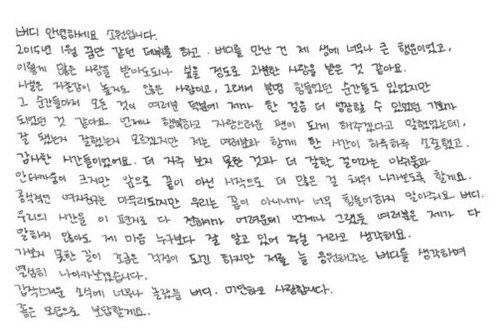 버디 안녕하세요 소원입니다.
2015년 1월 꿈만 같던 데뷔를 하고. 버디를 만난 건 제 생에 너무나 큰 행운이었고,
이렇게 많은 사랑을 받아도되나 싶을 정도로 과분한 사랑을 받은 것 같아요.
사실은 자존감이 높지도 않은 사람이고, 그래서 분명 힘들었던 순간들도 있었지만
그 순간들마저 모든 것이 여러분 덕분에 제가 한 걸음 더 성장할 수 있었던 기회가
되었던 것 같아요. 언제나 행복하고 자랑스러운 팬이 되게 해주겠다고 말했었는데,
잘 됐는지 잘했는지 모르겠지만 저는 여러분과 함께 한 시간이 하루하루 소중했고,
감사한 시간들이었어요. 더 자주 보지 못한 것과 더 잘할 걸이라는 아쉬움과
안타까움이 크지만 앞으로 끝이 아닌 시작으로 더 많은 걸 채워 나가보도록 할게요.
공식적인 여자친구는 마무리되지만 우리는 끝이 아니니까 너무 힘들어하지 말아주요 버디.
우리의 시간을 이 편지로 다 전하기가 어려운데 언제나 그랬듯 여러분은 제가 다
말하지 않아도 제 마음 누구보다 잘 알고 있어 주실 거라고 생각해요.
가보지 못한 길이 조금은 걱정이 되긴 하지만 저를 늘 응원해주는 버디들을 생각하며
열심히 나아가보겠습니다.
갑작스러운 소식에 너무나 놀랐을 버디. 미안하고 사랑합니다.
좋은 모습으로 보답할게요.